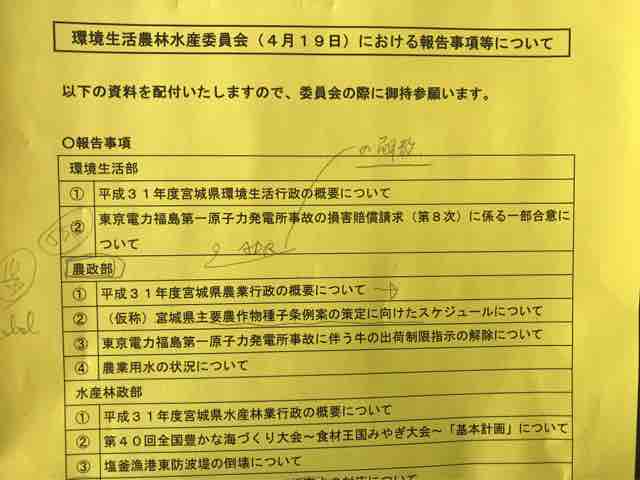 環境生活農林水産委員会(4月19日)における報告事項等について
以下の資料を配付いたしますので、委員会の際に御持参願います。
〇報告事項
環境生活部
① 平成31年度宮城県環境生活行政の概要について
② 東京電力福島第一原子力発電所事故の損害賠償請求(第8次)に係る一部合意に
ついて
ADR
農政部
① 平成31年度宮城県農業行政の概要について
② (仮称)宮城県主要農作物種子条例案の策定に向けたスケジュールについて
③ 東京電力福島第一原子力発電所事故に伴う牛の出荷制限指示の解除について
④ 農業用水の状況について
水産林政部
① 平成31年度宮城県水産林業行政の概要について
② 第40回全国豊かな海づくり大会~食材王国みやぎ大会~「基本計画」について
③ 塩釜漁港東防波堤の倒壊について